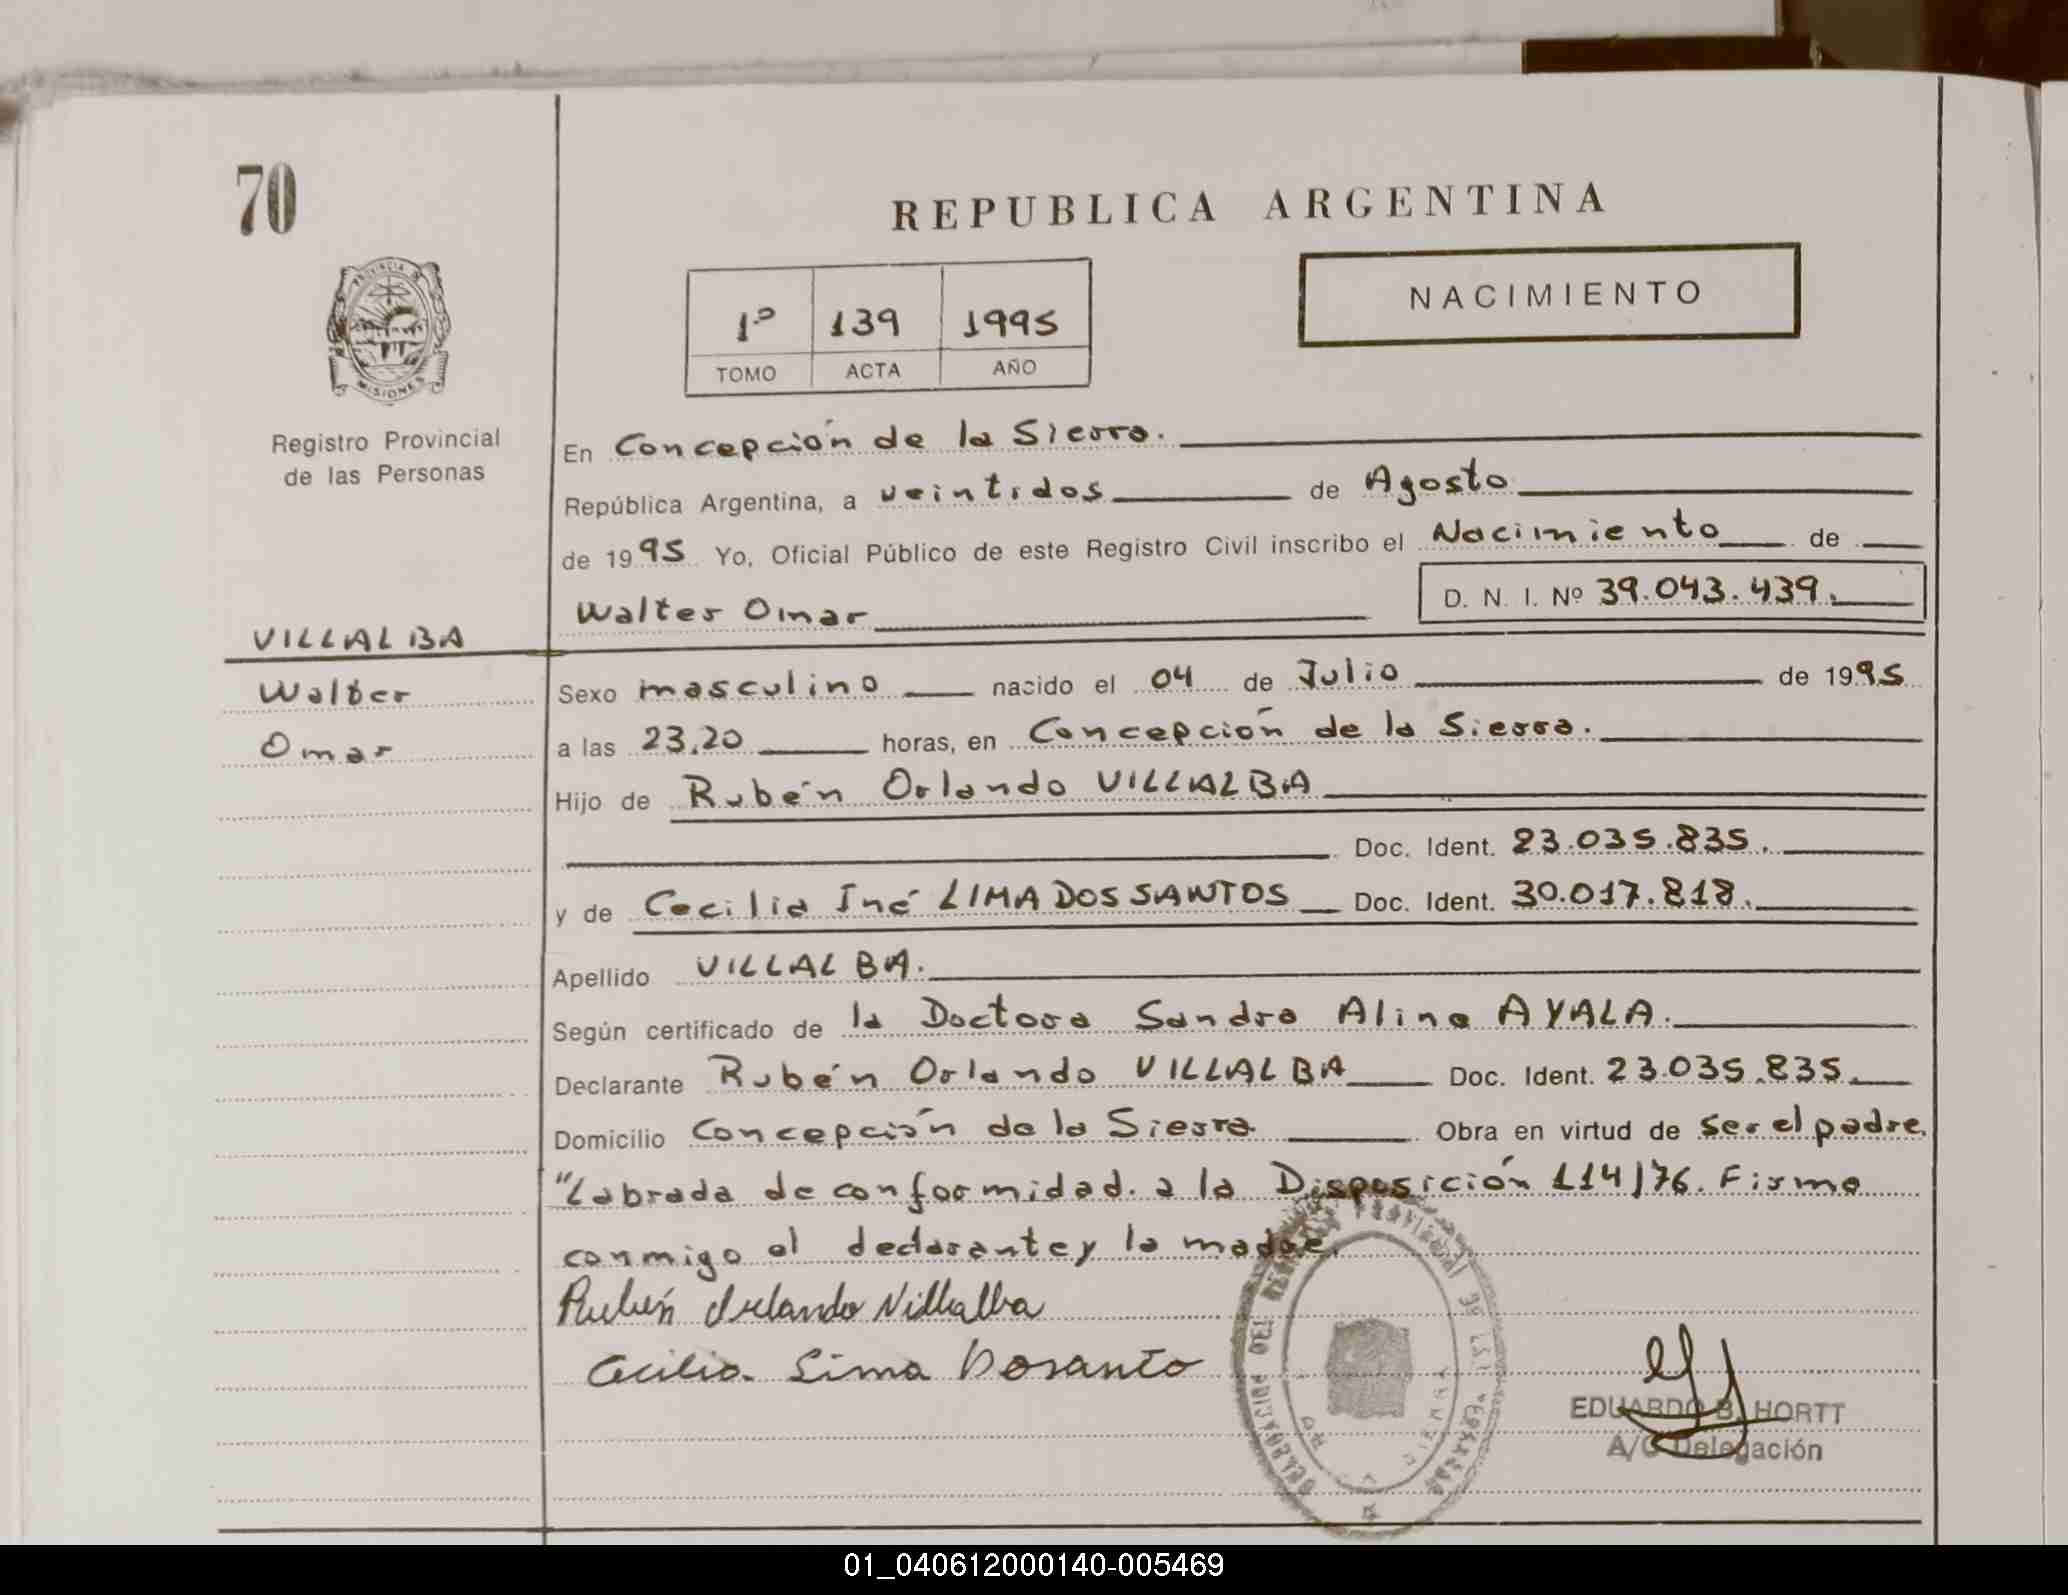 70
REPUBLICA ARGENTINA
PROVINCIA DE
MISIONES
1º 139 1995
TOMO ACTA AÑO
NACIMIENTO
Registro Provincial
de las Personas
En Concepción de la Sierra.
República Argentina, a veintidos de Agosto
de 1995 Yo, Oficial Público de este Registro Civil inscribo el Nacimiento de
Walter Omar D. N. I. Nº 39.043.439.
VILLALBA
Walter
Omar
Sexo masculino nacido el 04 de Julio de 1995
a las 23,20 horas, en Concepción de la Sierra.
Hijo de Rubén Orlando VILLALBA
Doc. Ident. 23.035.835.
y de Cecilia Iné LIMA DOS SANTOS Doc. Ident. 30.017.818.
Apellido VILLALBA.
Según certificado de la Doctora Sandra Alina AYALA.
Declarante Rubén Orlando VILLALBA Doc. Ident. 23.035.835.
Domicilio Concepción de la Sierra Obra en virtud de ser el padre.
"Labrada de conformidad. a la Disposición 114/76. Firma
conmigo el declarante y la madre.
Rubén Orlando Villalba
Cecilia. Lima Dosanto
EDUARDO B. HORTT
A/C Delegación
01_040612000140-005469